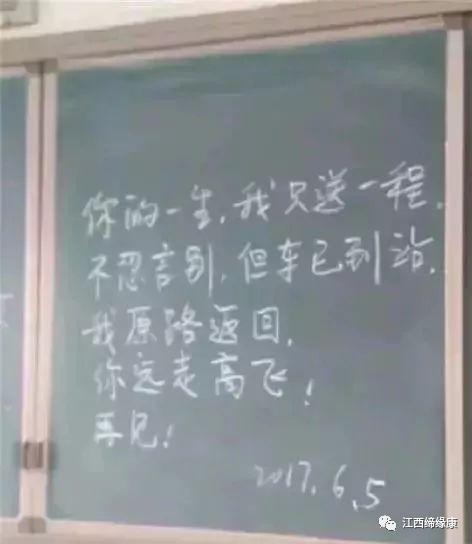 你的一生,我只送一程.
不忍言别,但车已到站.
我原路返回,
你远走高飞!
再见!
2017.6.5
江西缔缘康